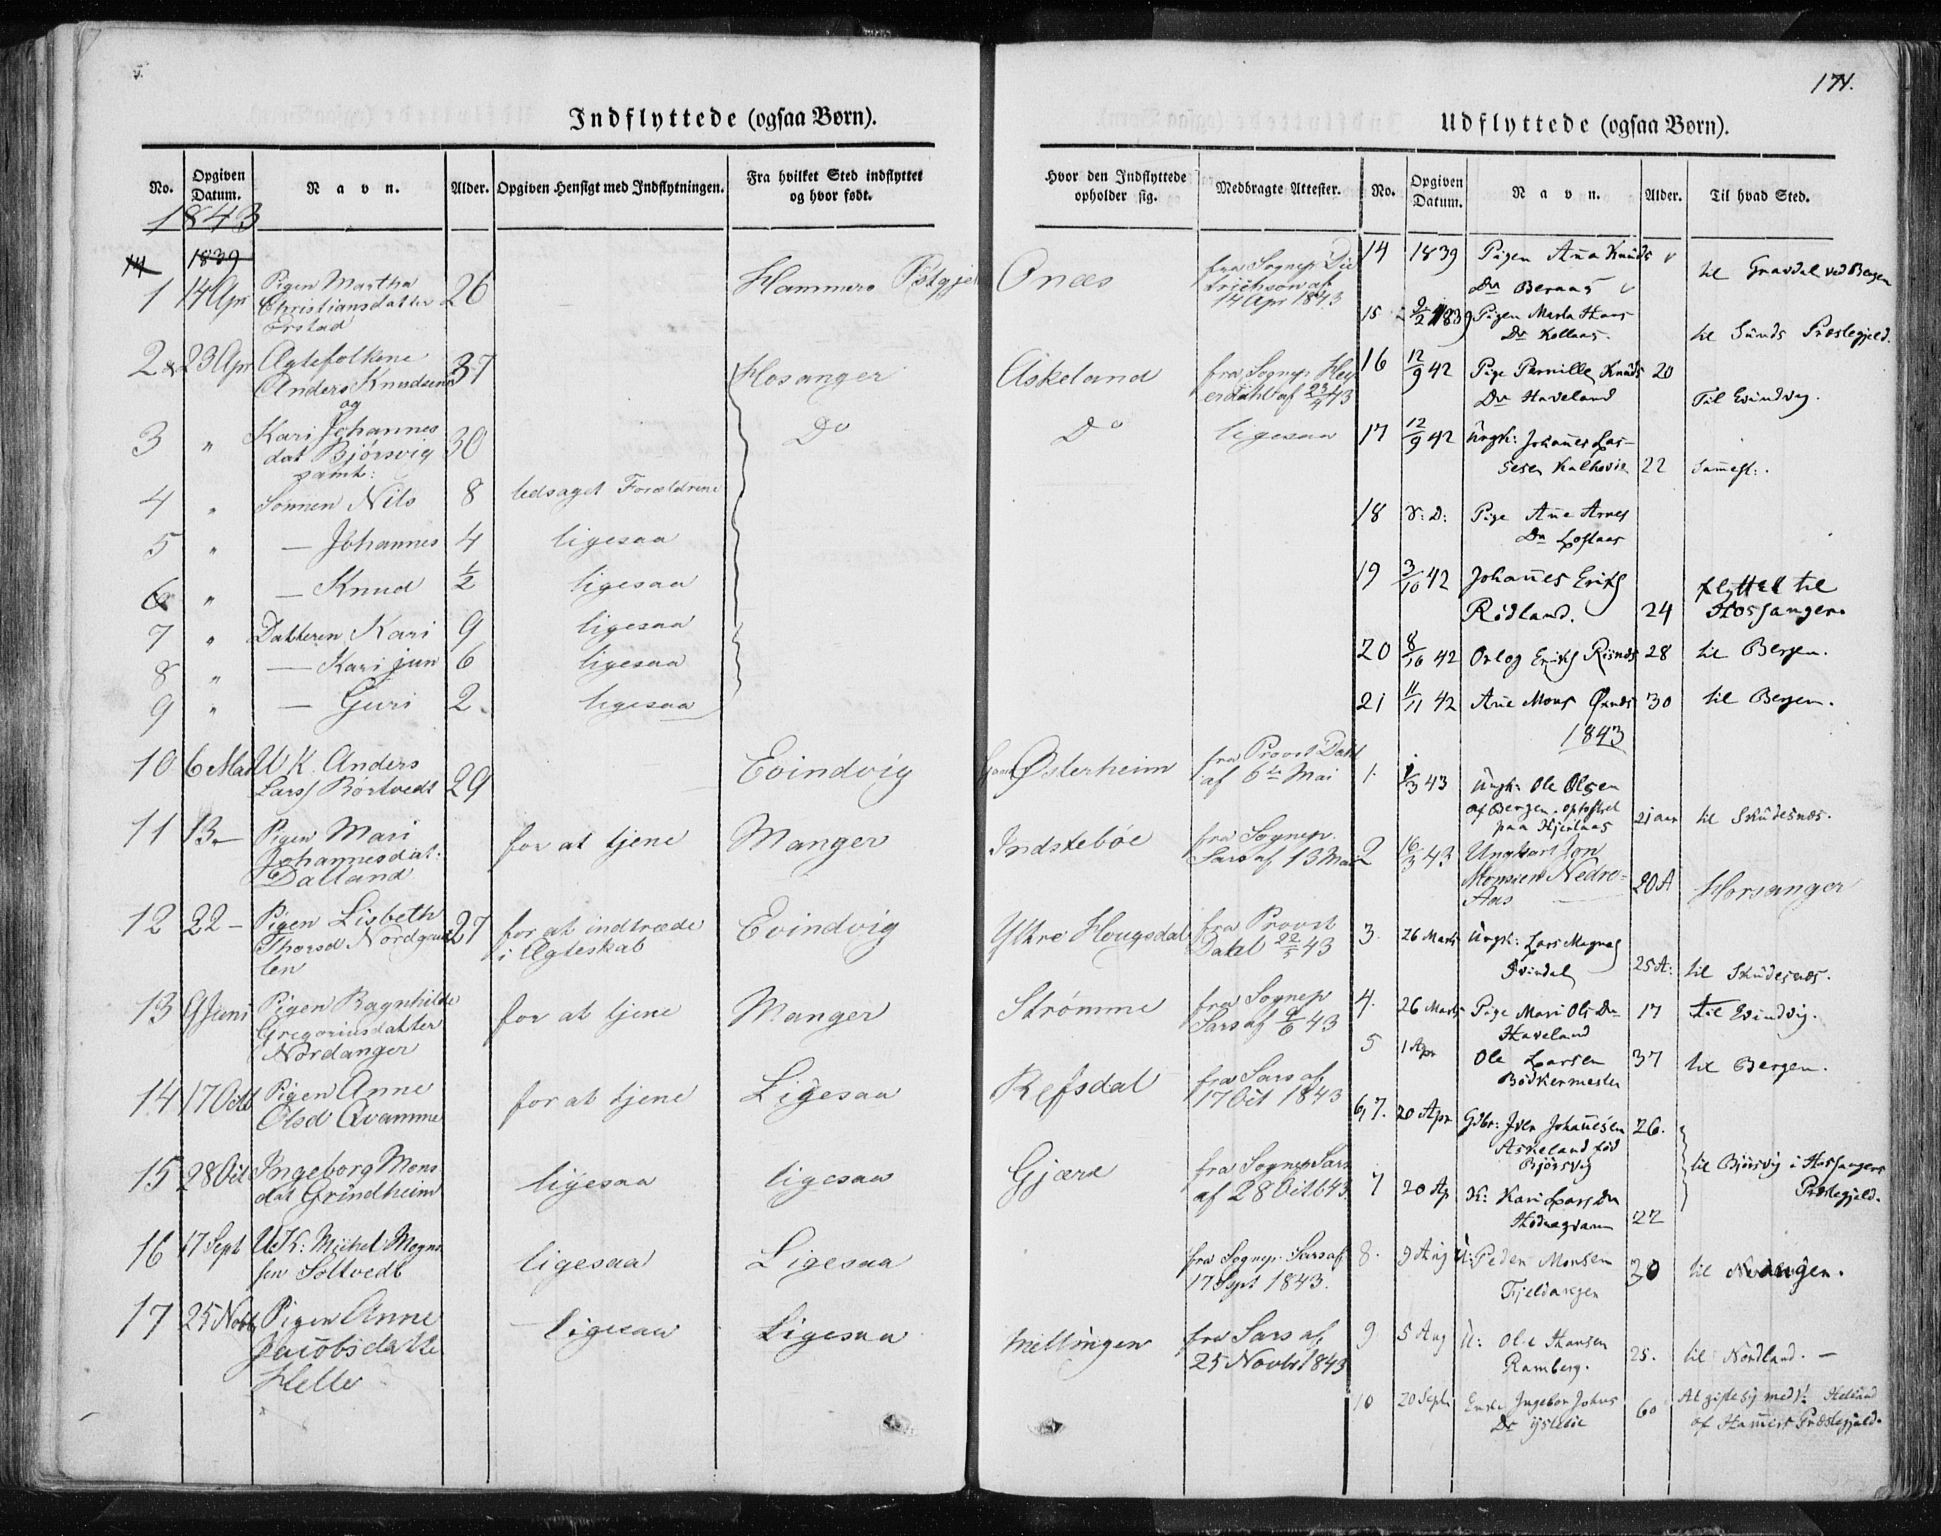 171.
Indflyttede (ogsaa Børn).
No.
Opgiven Datum.
Navn.
Alder.
Opgiven Hensigt med Indflytningen.
Fra hvilket Sted indflyttet og hvor født.
Hvor den Indflyttede opholder sig.
Medbragte Attester.
1843
14 1839
1 14 Apr Pigen Martha 26 Hammers Onæs fra Sognep.
Christiansdatter
14 Apr 1843
2 23 Apr Ægtefolkene 37 Hosanger Askeland fra Sognep. Hey
Anders Knudsen erdahl af 23/4 43
og
3 " Kari Johannes 30 Do Do ligesaa
dat Bjørsvig
samt:
4 " Sønnen Nils 8 ledsaget Forældrene
5 " — Johannes 4 ligesaa
6 " — Knud ½ ligesaa
7 " Datteren Kari 9 ligesaa
8 " — Kari jun 6 ligesaa
9 " — Guri 2 ligesaa
10 6 Mai U K. Anders 29 Evindvig Østerheim fra Provst Dahl
Larss Børtvedt af 6te Mai
11 13 — Pigen Mari for at tjene Manger Indstebøe fra Sognep.
Johannesdat. Sars af 13 Mai
Dalland
12 22 — Pigen Lisbeth 27 for at indtræde Evindvig Yttre Hougsdal fra Provst
Thorsd. i Ægteskab Dahl 22/5 43
13 9 Juni Pigen Ragnhilde for at tjene Manger Strømme fra Sognep
Gregoriusdatter Sars af 9/6 43
Nordanger
14 17 Octb Pigen Anne for at tjene Ligesaa Refsdal fra Sars af
Olsd Qvamme 17 Oct 1843
15 28 Oct Ingeborg Mons ligesaa ligesaa Gjære fra Sognep Sars
dat Grindheim af 28 Octb 43
16 17 Sept U.K: Michel Mogns ligesaa Ligesaa fra Sognep. Sars af
sen Soltvedt 17 Sept 1843.
17 25 Novb Pigen Anne ligesaa Ligesaa Mellingen fra Sars af
Jacobsdatte 25 Novbr 1843
Helle
Udflyttede (ogsaa Børn).
No.
Opgiven Datum.
Navn.
Alder.
Til hvad Sted.
14 1839 Pigen Ana Knuds til Gravdal ved Bergen
Dr Beraas
15 9/2 1839 Pigen Marta Hans til Sunds Præstegjeld.
Dr Kollaas.
16 12/9 42 Pige Pernille Knuds 20 Til Evindvig.
Dr Haveland
17 12/9 42 Ungk: Johanes Las-
sesen 22 Samest:.
18 Pige Ane Arnes
Dr Loftaas
19 3/10 42 Johanes Eriks flyttet til
Rødland. 24 Hossanger.
20 8/10 42 Eriks 28 til Bergen.
21 11/11 42 Ane Mons 30 til Bergen.
1843
1. 1/3 43 Ungk: Ole Olsen
af Bergen, opfostret 21 aar til Skudesnæs.
paa
2 16/3 43 Ungkarl Jon
Monsen Nedre- 20 A Horsanger
Aas
3. 26 Marts Ungk: Lars Magnes
25 A: til Skudesnæs.
4. 26 Marts Pige Mari Ols Dr 17 til Evindvig.
Haveland
5 1 Apr Ole Larsen 37 til Bergen.
Bødkermester
6, 7. 20 Apr Gdbr: Iver Johanesen 26.
Askeland fød
Bjørsvig til Bjørsvig i Hossangers
7 20 Ap K: Kari Lars Dr 22 Præstegjeld.
8. 9 Aug U: Peder Monsen 20
Fjeldanger
9 5 Aug U: Ole Hansen
Ramberg. 25. til Nordland. —
10 20 Sept Enke Ingebor Johns 60 At gifte sig med
Dr af Hamers Præstegjeld.